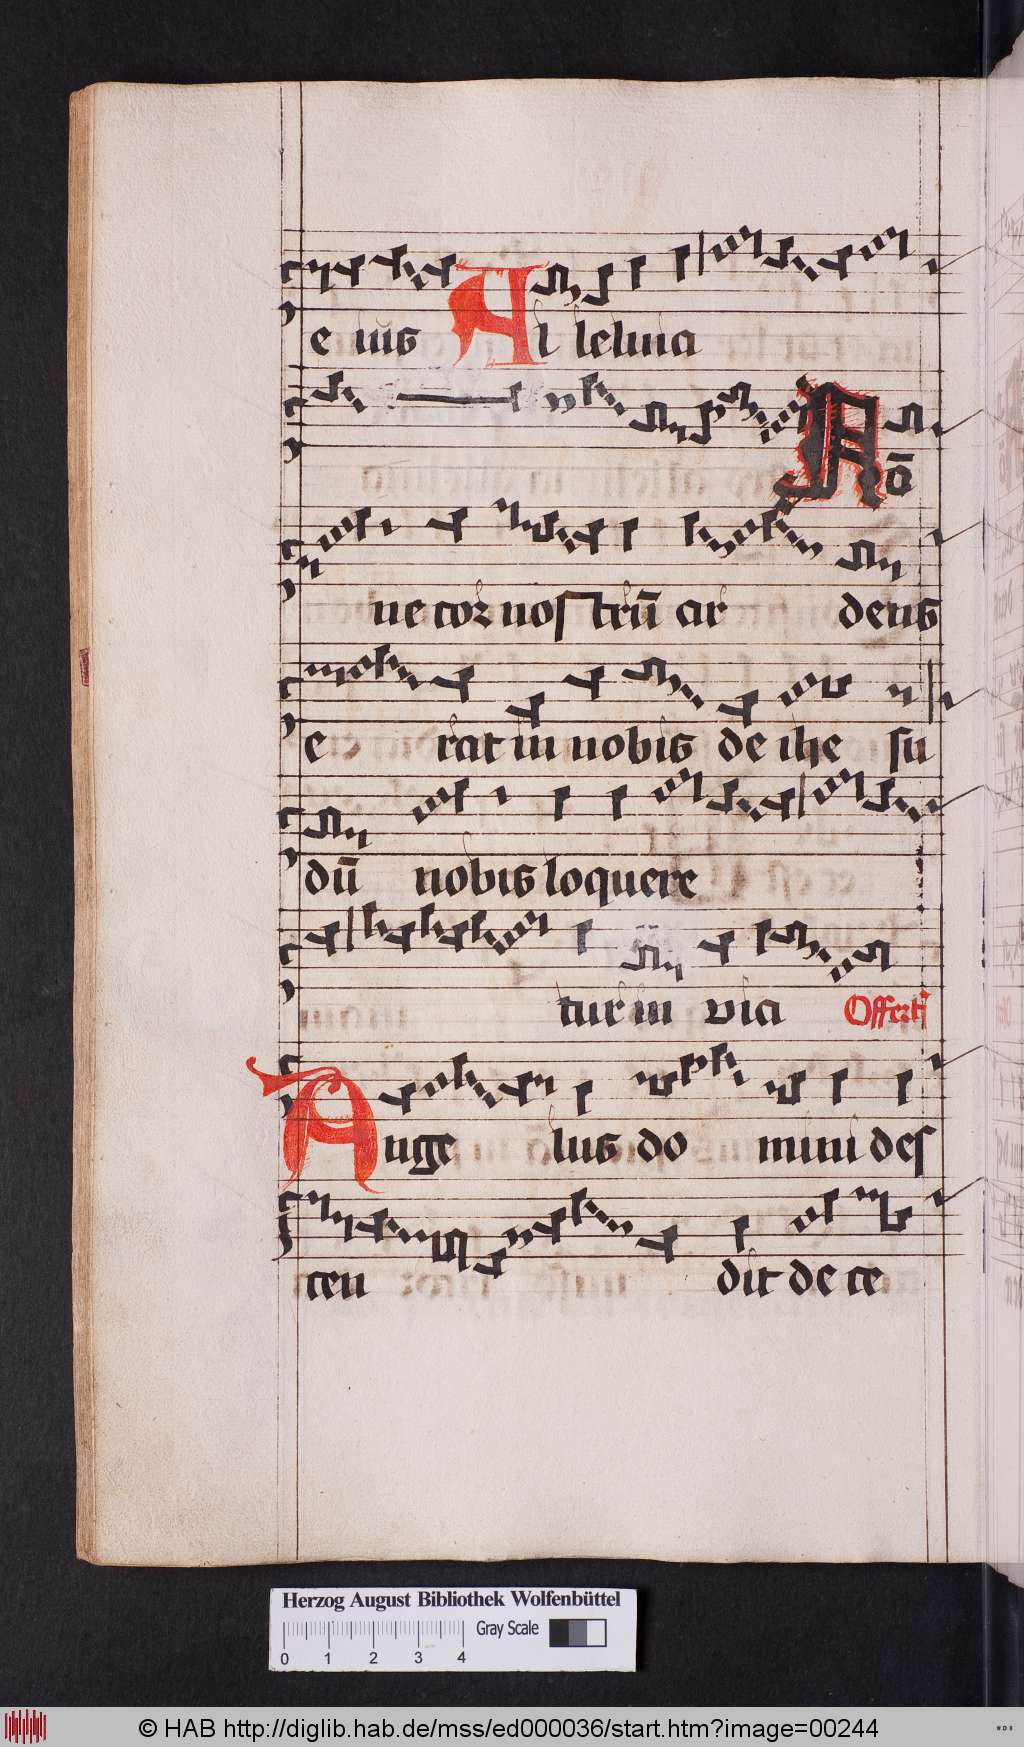 e iu͂s Al leluia
Nō
ne cor nostrū ar dens
e rat in nobis de ihe su
dū nobis loquere
tur in via Offert
Ange lus do mini des
cen dit de ce
Herzog August Bibliothek Wolfenbüttel
Gray Scale
0 1 2 3 4
© HAB http://diglib.hab.de/mss/ed000036/start.htm?image=00244